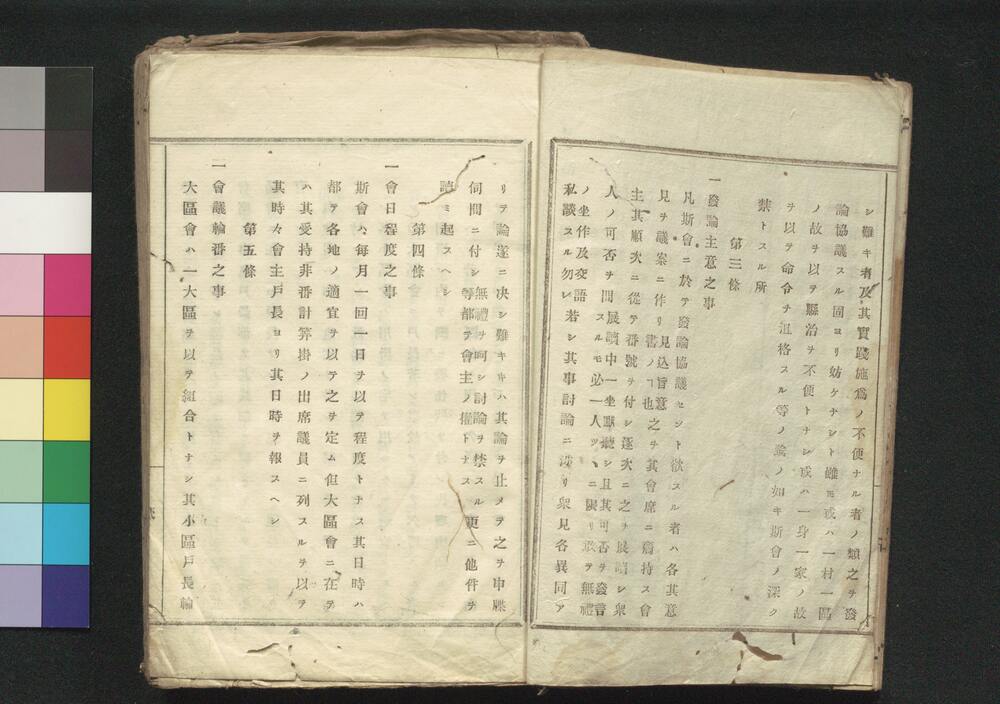 シ難キ者及其實踐施爲ノ不便ナル者ノ類之ヲ發
論協議スル固ヨリ妨ケナシト雖モ或ハ一村一區
ノ故ヲ以テ縣治ヲ不便トナシ或ハ一身一家ノ故
ヲ以テ命令ヲ沮格スル等ノ論ノ如キ斯會ノ深ク
禁トスル所
第三條
一發論主意之事
凡斯會ニ於テ發論協議セント欲スル者ハ各其意
見ヲ議案ニ作リ見込旨意書ノヿ也之ヲ其會席ニ齎持ス會
主其順次ニ從テ番號ヲ付シ逐次ニ之ヲ展讀シ衆
人ノ可否ヲ問展讀中一坐默聽シ且其可否ヲ發言スルモ必一人ツヽニ限リ敢テ無禮
ノ坐作及交語私談スル勿レ若シ其事討論ニ涉リ衆見各異同ア
リテ論遂ニ决シ難キキハ其論ヲ止メテ之ヲ申牒
伺問ニ付シ無禮ヲ呵シ討論ヲ禁スル等都テ會主ノ權トナス更ニ他件ヲ
讀ミ起スヘシ
第四條
一會日程度之事
斯會ハ每月一回一日ヲ以テ程度トナス其日時ハ
都テ各地ノ適宜ヲ以テ之ヲ定ム但大區會ニ在テ
ハ其受持非番計算掛ノ出席議員ニ列スルヲ以テ
其時々會主戸長ヨリ其日時ヲ報スヘシ
第五條
一會議輪番之事
大區會ハ一大區ヲ以テ組合トナシ其小區戸長輪